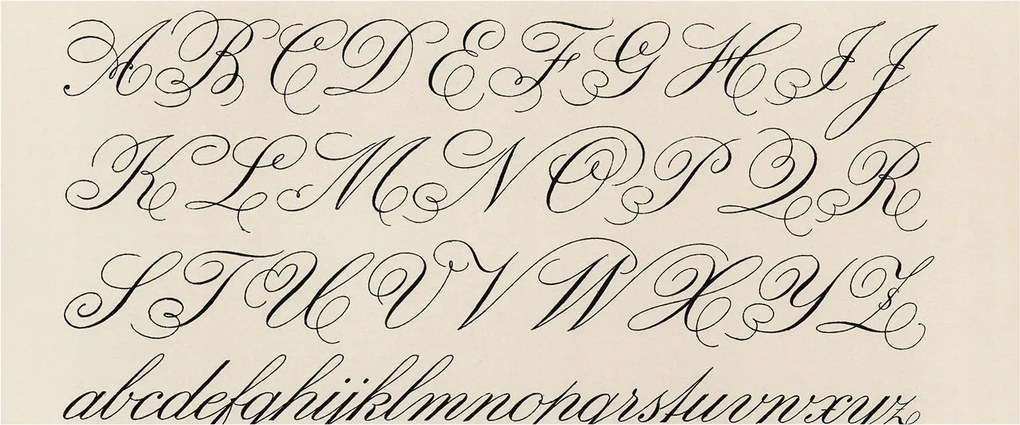 A B C D E F G H I J
K L M N O P Q R
S T U V V W X Y Z
abcdefghijklmnopqrstuvwxyz